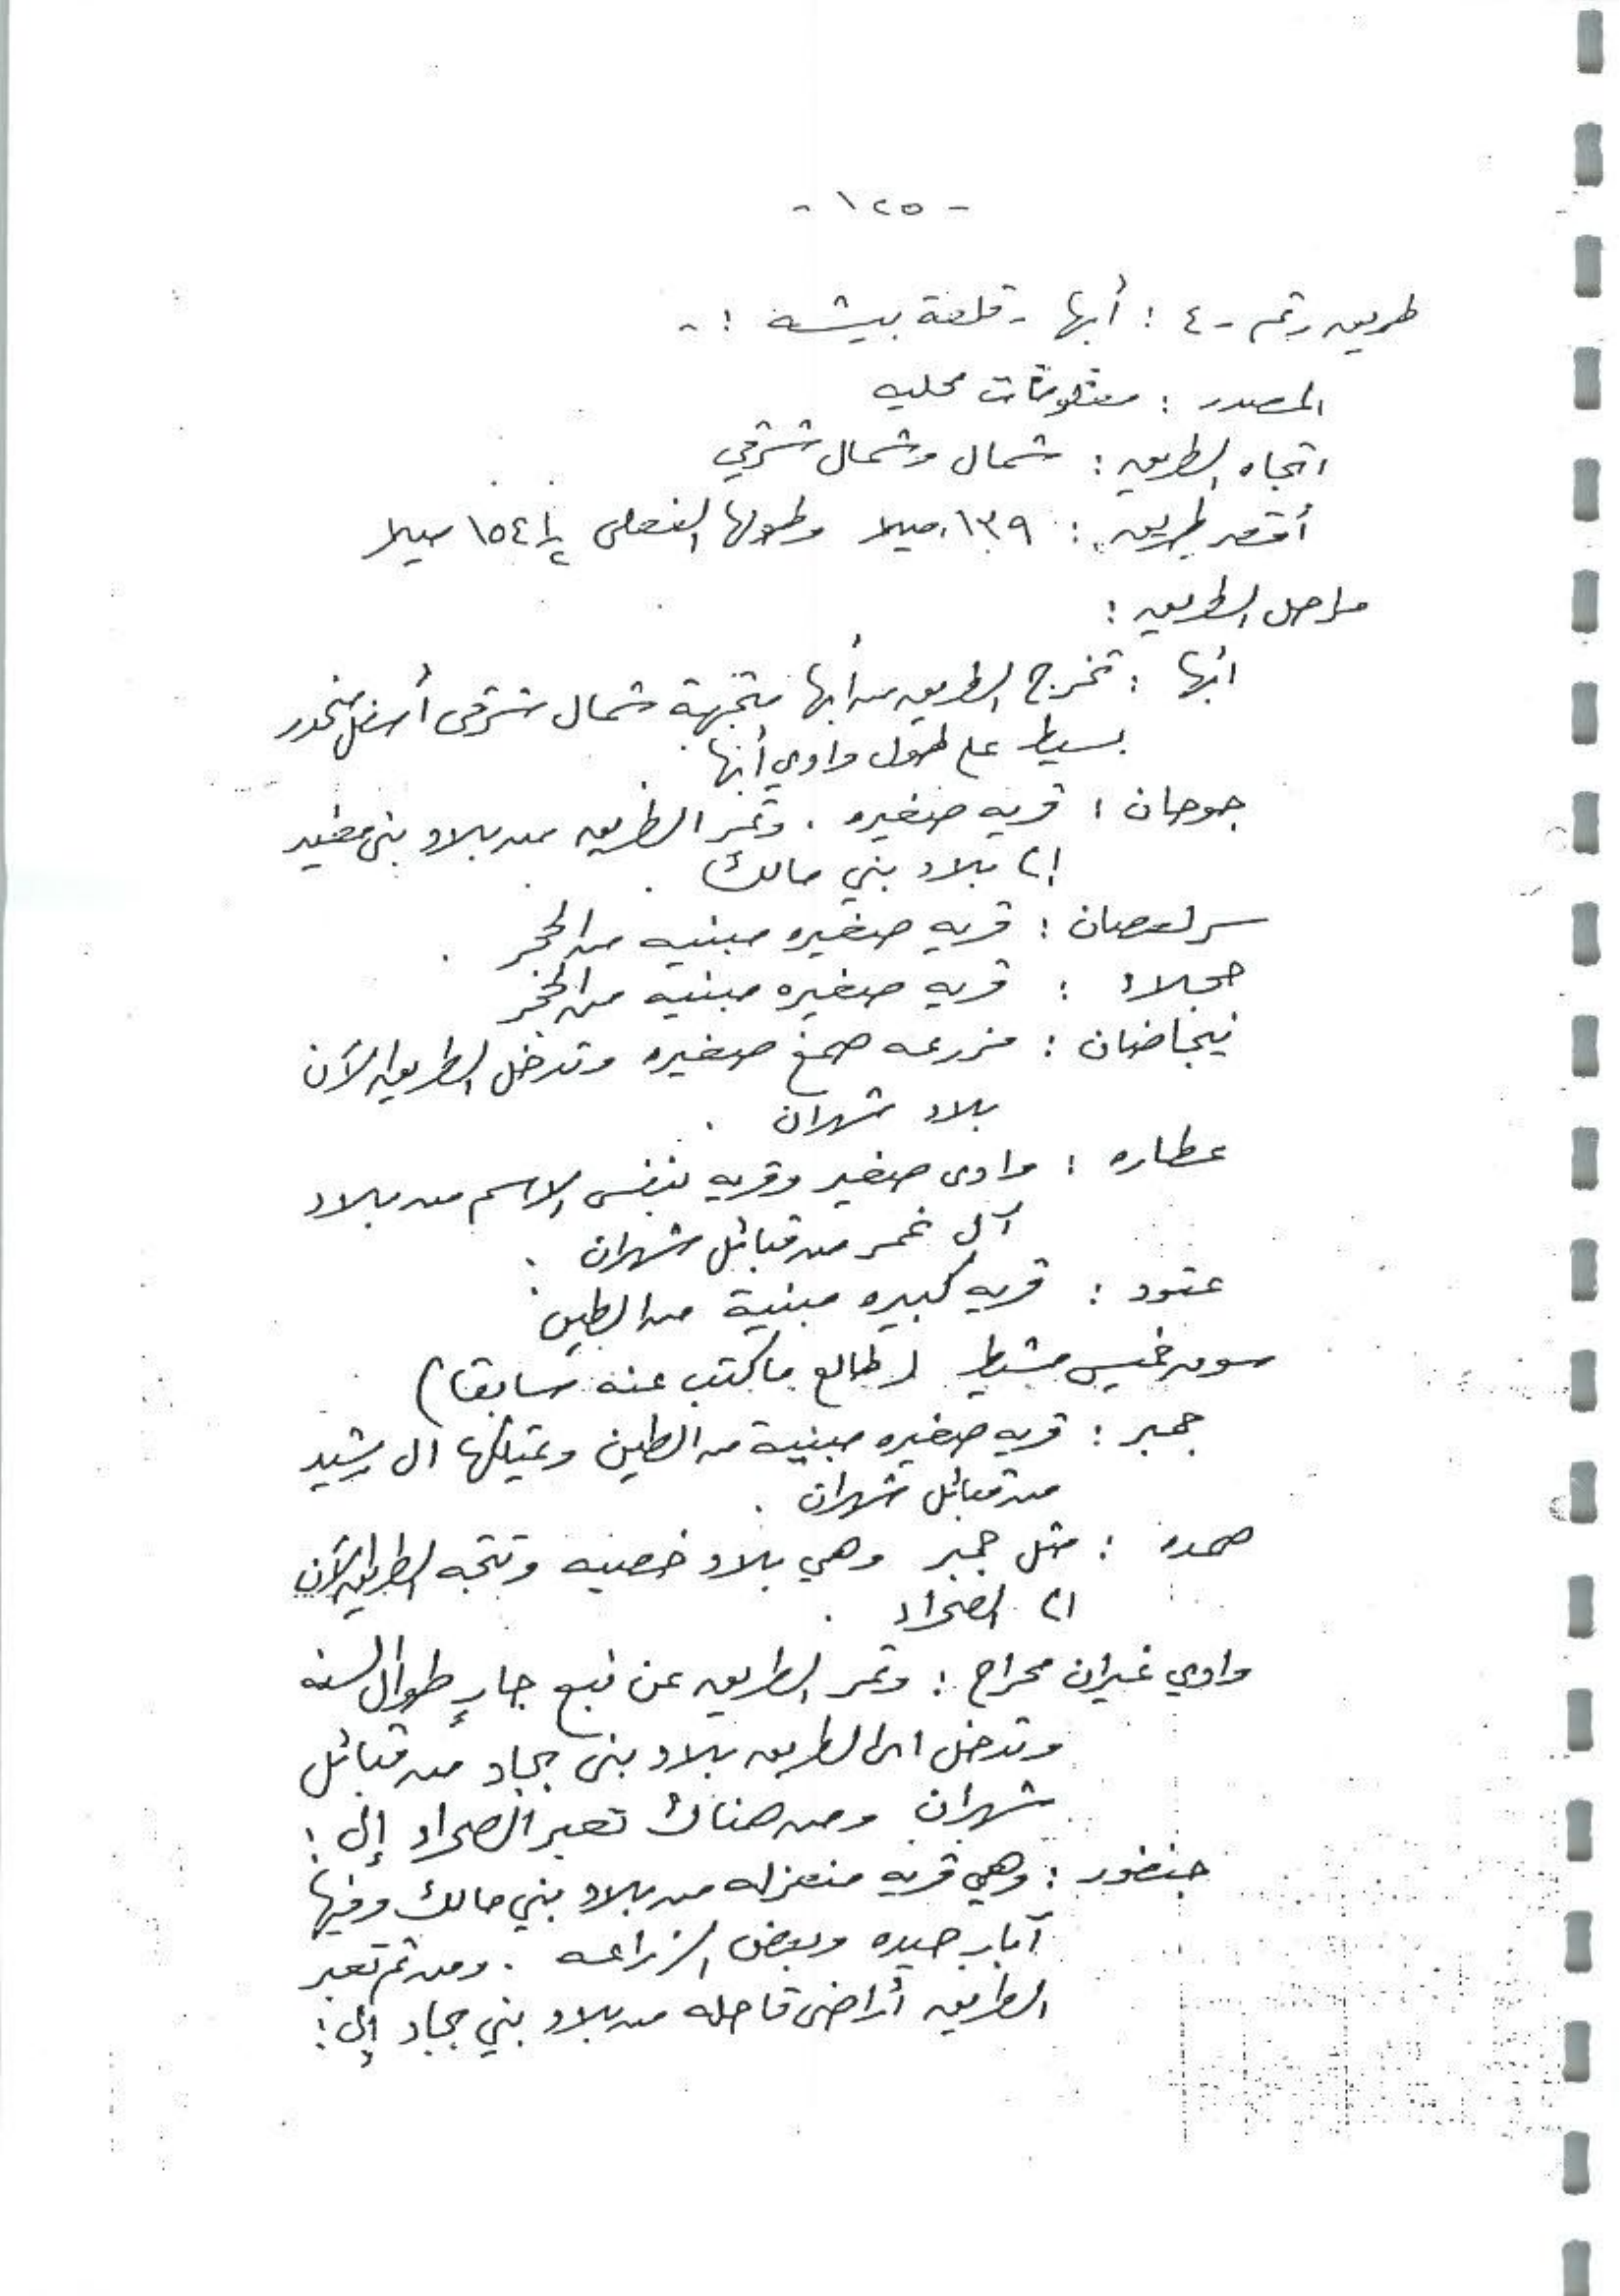 - ١٢٥ -
طريق رقم - ٤ : أبها - قلعة بيشه : -
المصدر : معلومات محليه
اتجاه الطريق : شمال وشمال شرقي
أقصر طريق : ١٣٩ ميلا وطولها الفعلي ١٥٤ ١/٢ ميلا
مراحل الطريق :
ابها : تخرج الطريق من أبها متجهة شمال شرقي أسفل منحدر
بسيط على طول وادي أبها
جوحان : قريه صغيره . وتمر الطريق من بلاد بني مغيد
إلى بلاد بني مالك .
سر لعصان : قريه صغيره مبنيه من الحجر .
حجلاء : قريه صغيره مبنيه من الحجر
نيجاضان : مزرعه صمغ صغيره وتدخل الطريق الآن
بلاد شهران .
عطاره : وادى صغير وقريه بنفس الاسم من بلاد
آل غمر من قبائل شهران .
عتود : قريه كبيره مبنية من الطين
سوق خميس مشيط ( طالع ما كتب عنه سابقا )
جمبر : قريه صغيره مبنية من الطين ويمتلكها ال رشيد
من قبائل شهران .
صمده : مثل جمبر وهي بلاد خصبه وتتجه الطريق الآن
الى الصحراء .
وادي غيران محراح : وتمر الطريق عن نبع جارٍ طوال السنه
وتدخل الطريق بلاد بني بجاد من قبائل
شهران ومن هناك تعبر الصحراء إلى :
جنضور : وهي قريه منعزله من بلاد بني مالك وفيها
آبار جيده وبعض الزراعه . ومن ثم تعبر
الطريق أراضي قاحله من بلاد بني بجاد إلى :